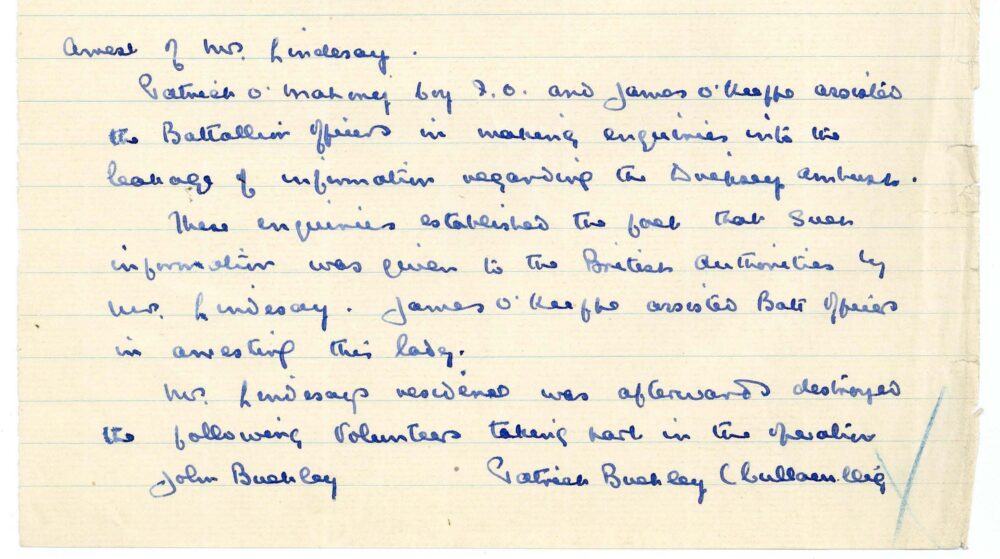 Arrest of Mrs. Lindesay.
Patrick O'Mahony Coy I.O. and James O'Keeffe assisted
the Battallion Officers in making enquiries into the
leakage of information regarding the Dripsey Ambush.
These enquiries established the fact that such
information was given to the British Authorities by
Mrs. Lindesay. James O'Keeffe assisted Batt Officers
in arresting this lady.
Mrs. Lindesays residence was afterwards destroyed
the following Volunteers taking part in the operation
John Buckley Patrick Buckley